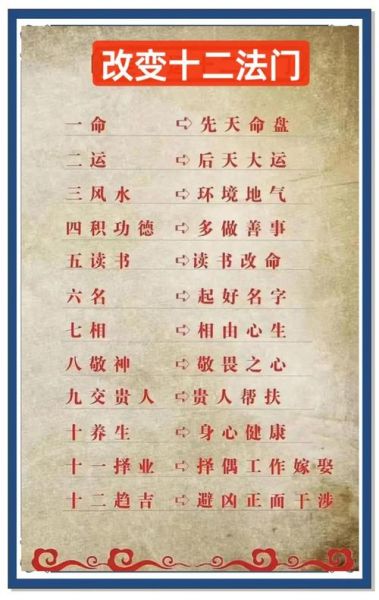 改变十二法门
一命 ➪ 先天命盘
二运 ➪ 后天大运
三风水 ➪ 环境地气
四积功德 ➪ 多做善事
五读书 ➪ 读书改命
六名 ➪ 起好名字
七相 ➪ 相由心生
八敬神 ➪ 敬畏之心
九交贵人 ➪ 贵人帮扶
十养生 ➪ 身心健康
十一择业 ➪ 择偶工作嫁娶
十二趋吉 ➪ 避凶正面干涉